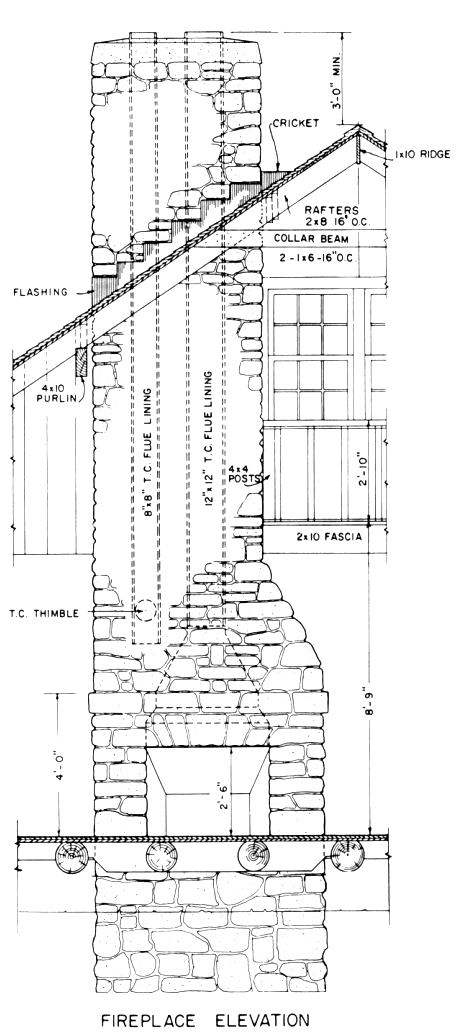 3'-0" MIN.
CRICKET
1x10 RIDGE
RAFTERS
2x8 16" O.C.
COLLAR BEAM
2-1x6-16"O.C.
FLASHING
4x10
PURLIN
8"x8" T.C. FLUE LINING
12"x12" T.C. FLUE LINING
4x4
POSTS
2'-10"
2x10 FASCIA
T.C. THIMBLE
8'-9"
4'-0"
2'-6"
FIREPLACE ELEVATION